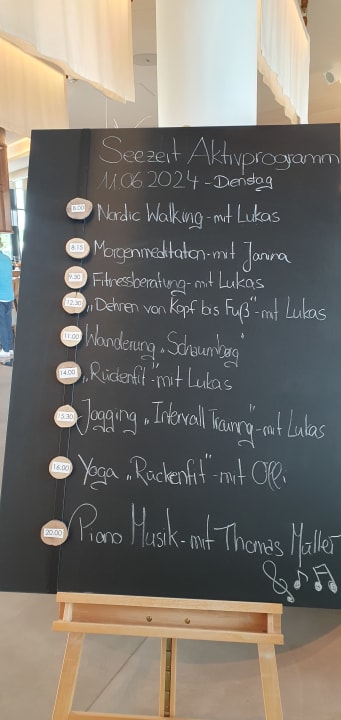 Seezeit Aktivprogramm
11.06.2024 - Dienstag
8.00 Nordic Walking - mit Lukas
8:15 Morgenmeditation - mit Janina
9.30 Fitnessberatung - mit Lukas
„Dehnen von Kopf bis Fuß" - mit Lukas
11.00 Wanderung „Schaumberg"
14.00 „Rückenfit" - mit Lukas
15.30 Jogging „Intervall Training" - mit Lukas
16.00 Yoga „Rückenfit" - mit Olli
20.00 Piano Musik - mit Thomas Müller